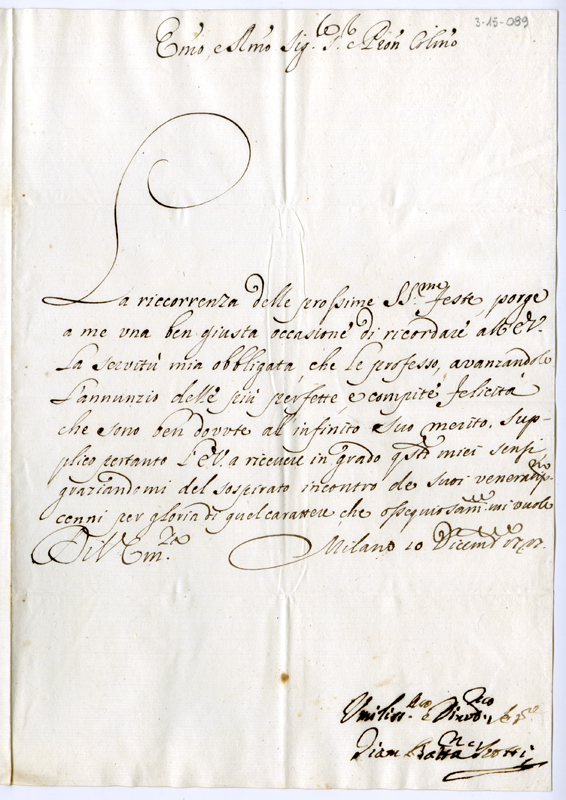 3-15-089
Emo, e Rmo Sig.re S.r e Pron Colmo
La riccorrenza delle prossime SS.me feste porge
a me vna ben giusta occasione di ricordare all'E.V.
la servitù mia obbligata, che le professo, avanzandole
l'annunzio delle più perfette, e compite felicità
che sono ben dovute al'infinito suo merito. Sup-
plico pertanto l'E.V. a riceuere in grado qsti miei sensi
graziandomi del sospirato incontro de suoi veneratis.mi
cenni per gloria di quel carattere che ossequiosam.te mi vuole
Di V. Em.za Milano 10 Dicemb
Vmilis.mo e Diuot.mo
Gian Batta Scotti